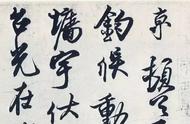 京 頓首
鈞候動
墻宇伏
台光在